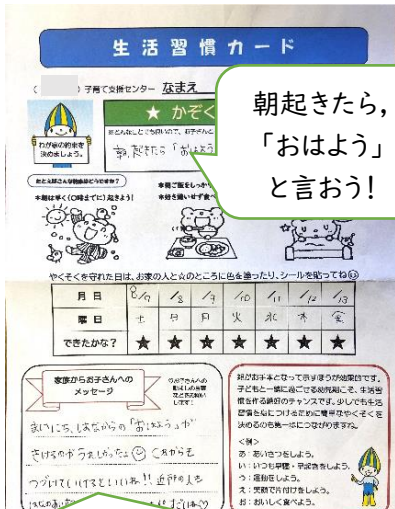 生活習慣カード
( ) 子育て支援センター なまえ
★ かぞく
朝、起きたら「おはよう
朝起きたら,
「おはよう」
と言おう!
わが家の約束を
決めましょう。
たとえばこんな約束はどうですか？
★朝は早く(〇時までに)起きよう!
★朝ご飯をしっかり
やくそくを守れた日は、お家の人と☆のところに色を塗ったり、シールを貼ってね
月日 8/7 /8 /9 /10 /11 /12 /13
曜日 土 日 月 火 水 木 金
できたかな？ ★ ★ ★ ★ ★ ★ ★
家族からお子さんへの
メッセージ
まいにち、
「おはよう」が
きけるのがうれしかったよ
つづけていけるといいね!! 近所の人も
親がお手本となって示すほうが効果的です。
子どもと一緒に過ごせる幼児期こそ、生活習
慣を作る絶好のチャンスです。少しでも生活
習慣を身につけるために簡単なやくそくを
決めるのも第一歩につながりますね。
<例>
あ：あいさつをしよう。
い：いつも早寝・早起きをしよう。
う：運動をしよう。
え：笑顔で片付けをしよう。
お：おいしく食べよう。